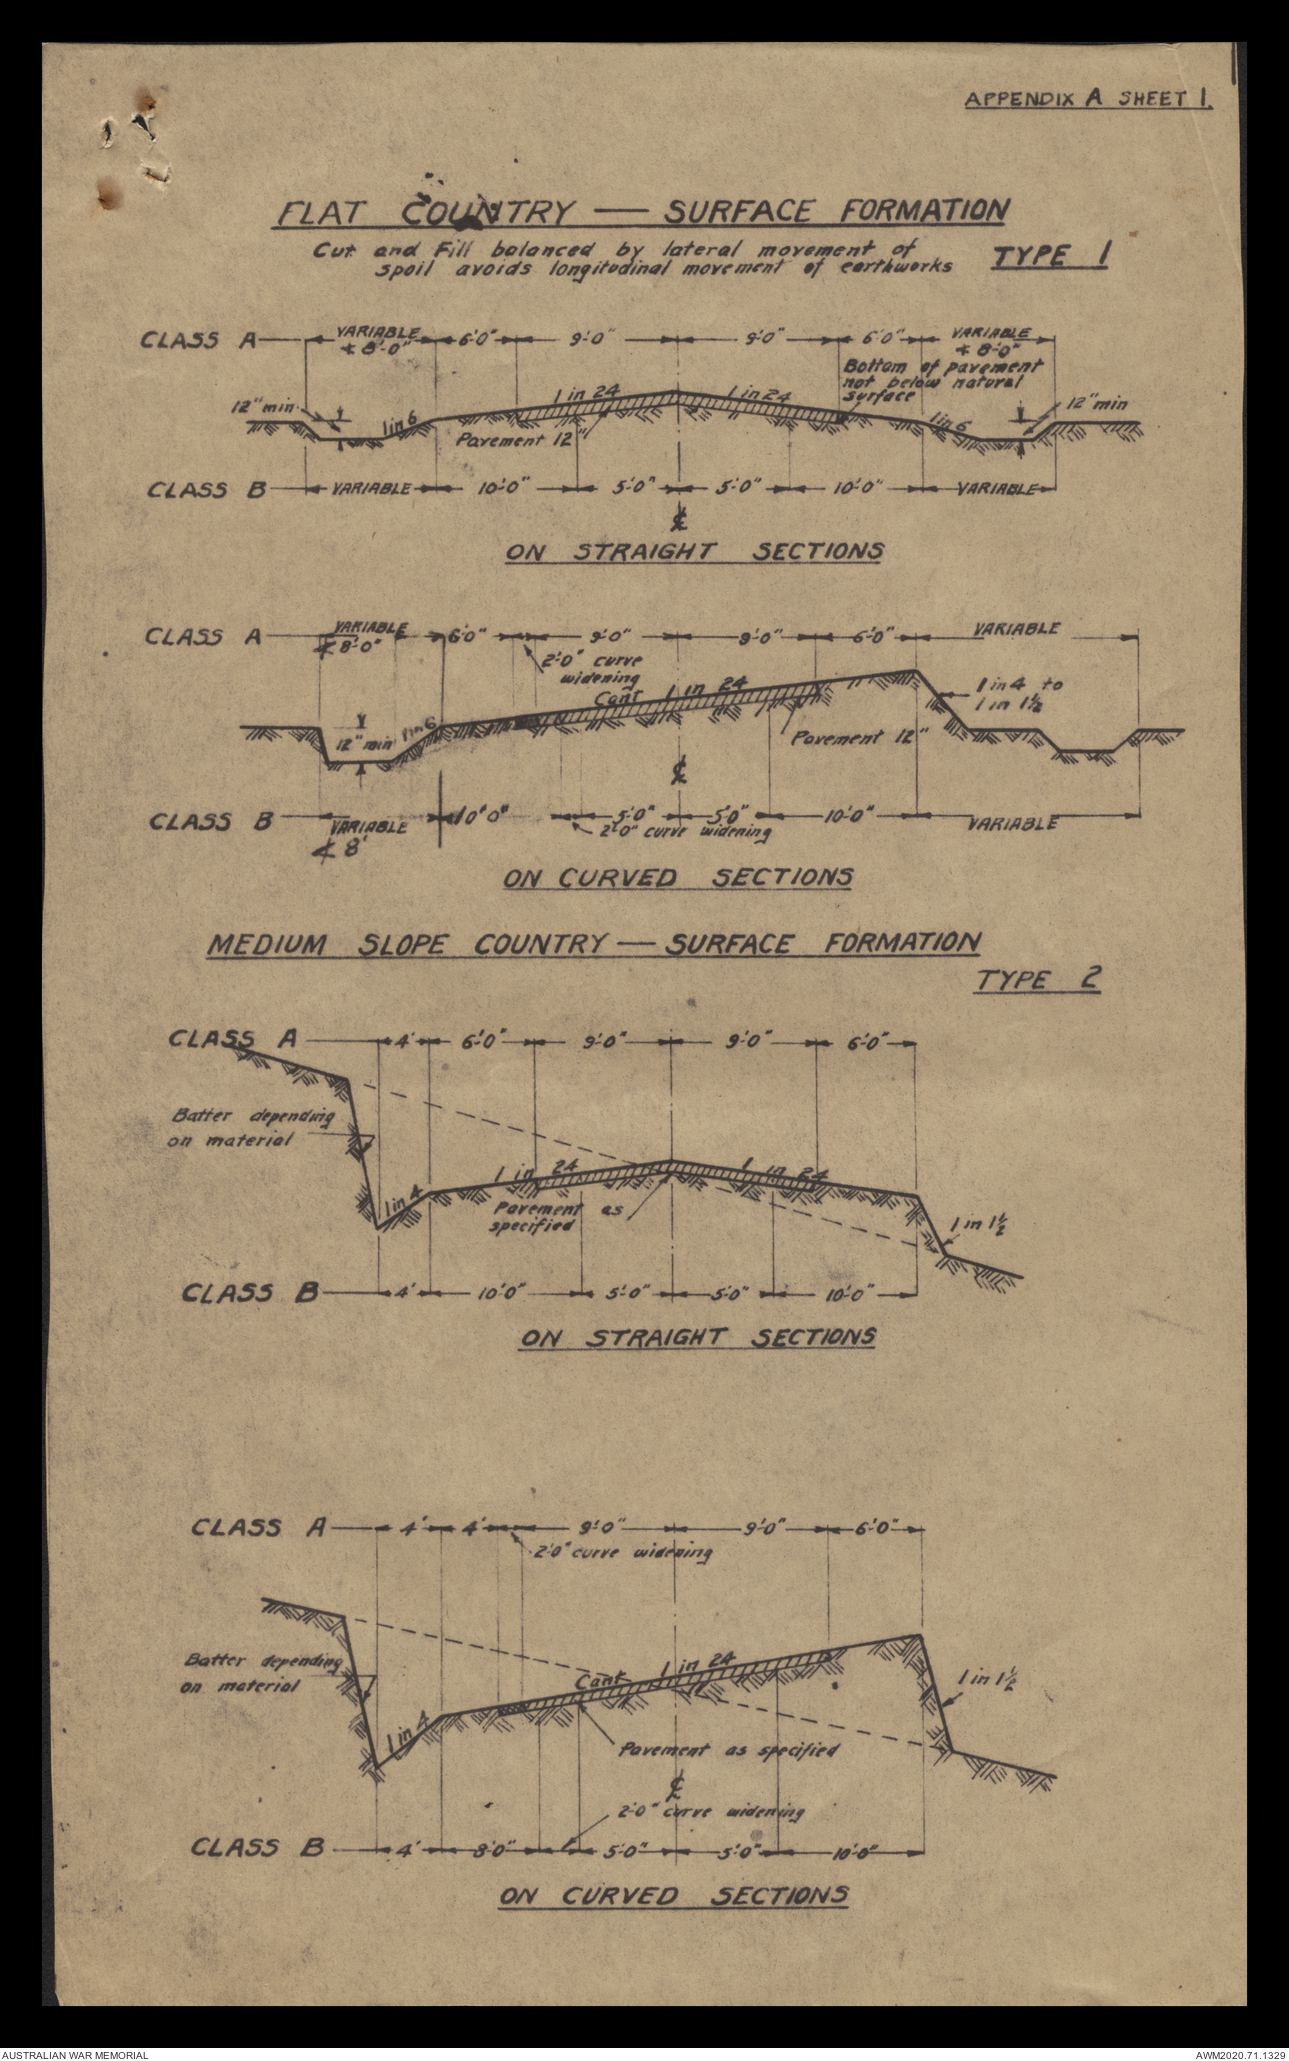 APPENDIX A SHEET 1.
FLAT COUNTRY — SURFACE FORMATION
Cut and Fill balanced by lateral movement of
spoil avoids longitudinal movement of earthworks
TYPE 1
CLASS A VARIABLE 6'-0" 9'-0" 9'-0" 6'-0" VARIABLE
≮ 8'-0" ≮ 8'-0"
Bottom of pavement
not below natural
surface
12" min 1 in 6 1 in 24 1 in 24 1 in 6 12" min
Pavement 12"
CLASS B VARIABLE 10'-0" 5'-0" 5'-0" 10'-0" VARIABLE
℄
ON STRAIGHT SECTIONS
CLASS A VARIABLE 6'-0" 9'-0" 9'-0" 6'-0" VARIABLE
≮ 8'-0"
2'-0" curve
widening
Cant 1 in 24
1 in 4 to
1 in 1½
12" min 1 in 6
Pavement 12"
℄
CLASS B VARIABLE 10'0" 5'-0" 5'-0" 10'-0" VARIABLE
≮ 8'
2'-0" curve widening
ON CURVED SECTIONS
MEDIUM SLOPE COUNTRY — SURFACE FORMATION
TYPE 2
CLASS A 4' 6'-0" 9'-0" 9'-0" 6'-0"
Batter depending
on material
1 in 4 1 in 24 1 in 24
Pavement as
specified
1 in 1½
CLASS B 4' 10'-0" 5'-0" 5'-0" 10'-0"
ON STRAIGHT SECTIONS
CLASS A 4' 4' 9'-0" 9'-0" 6'-0"
2'-0" curve widening
Batter depending
on material
Cant 1 in 24
1 in 1½
1 in 4
Pavement as specified
℄
2'-0" curve widening
CLASS B 4' 8'-0" 5'-0" 5'-0" 10'-0"
ON CURVED SECTIONS
AUSTRALIAN WAR MEMORIAL
AWM2020.71.1329